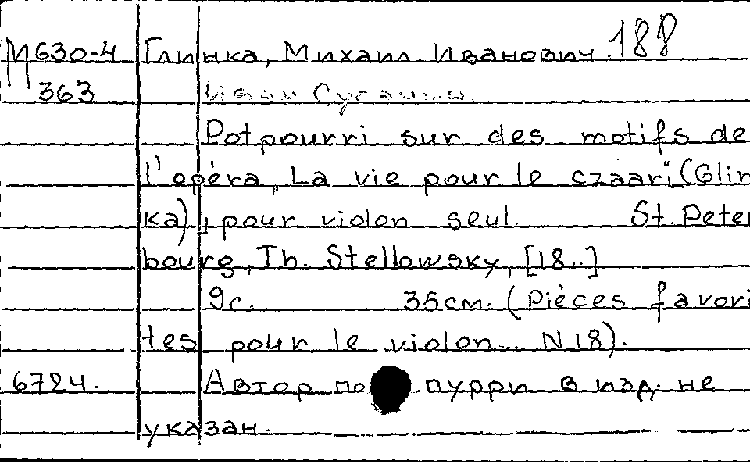 М630-4 Глинка, Михаил Иванович 188
363 Иван Сусанин.
Potpourri sur des motifs de
l'opéra „La vie pour le czaar" (Glin
ka), pour violon seul. St. Peter
bourg, Th. Stellowsky, [18..]
9с. 35см. (Pièces favori
tes pour le violon. N 18).
6724. Автор по пурри в изд. не
указан.